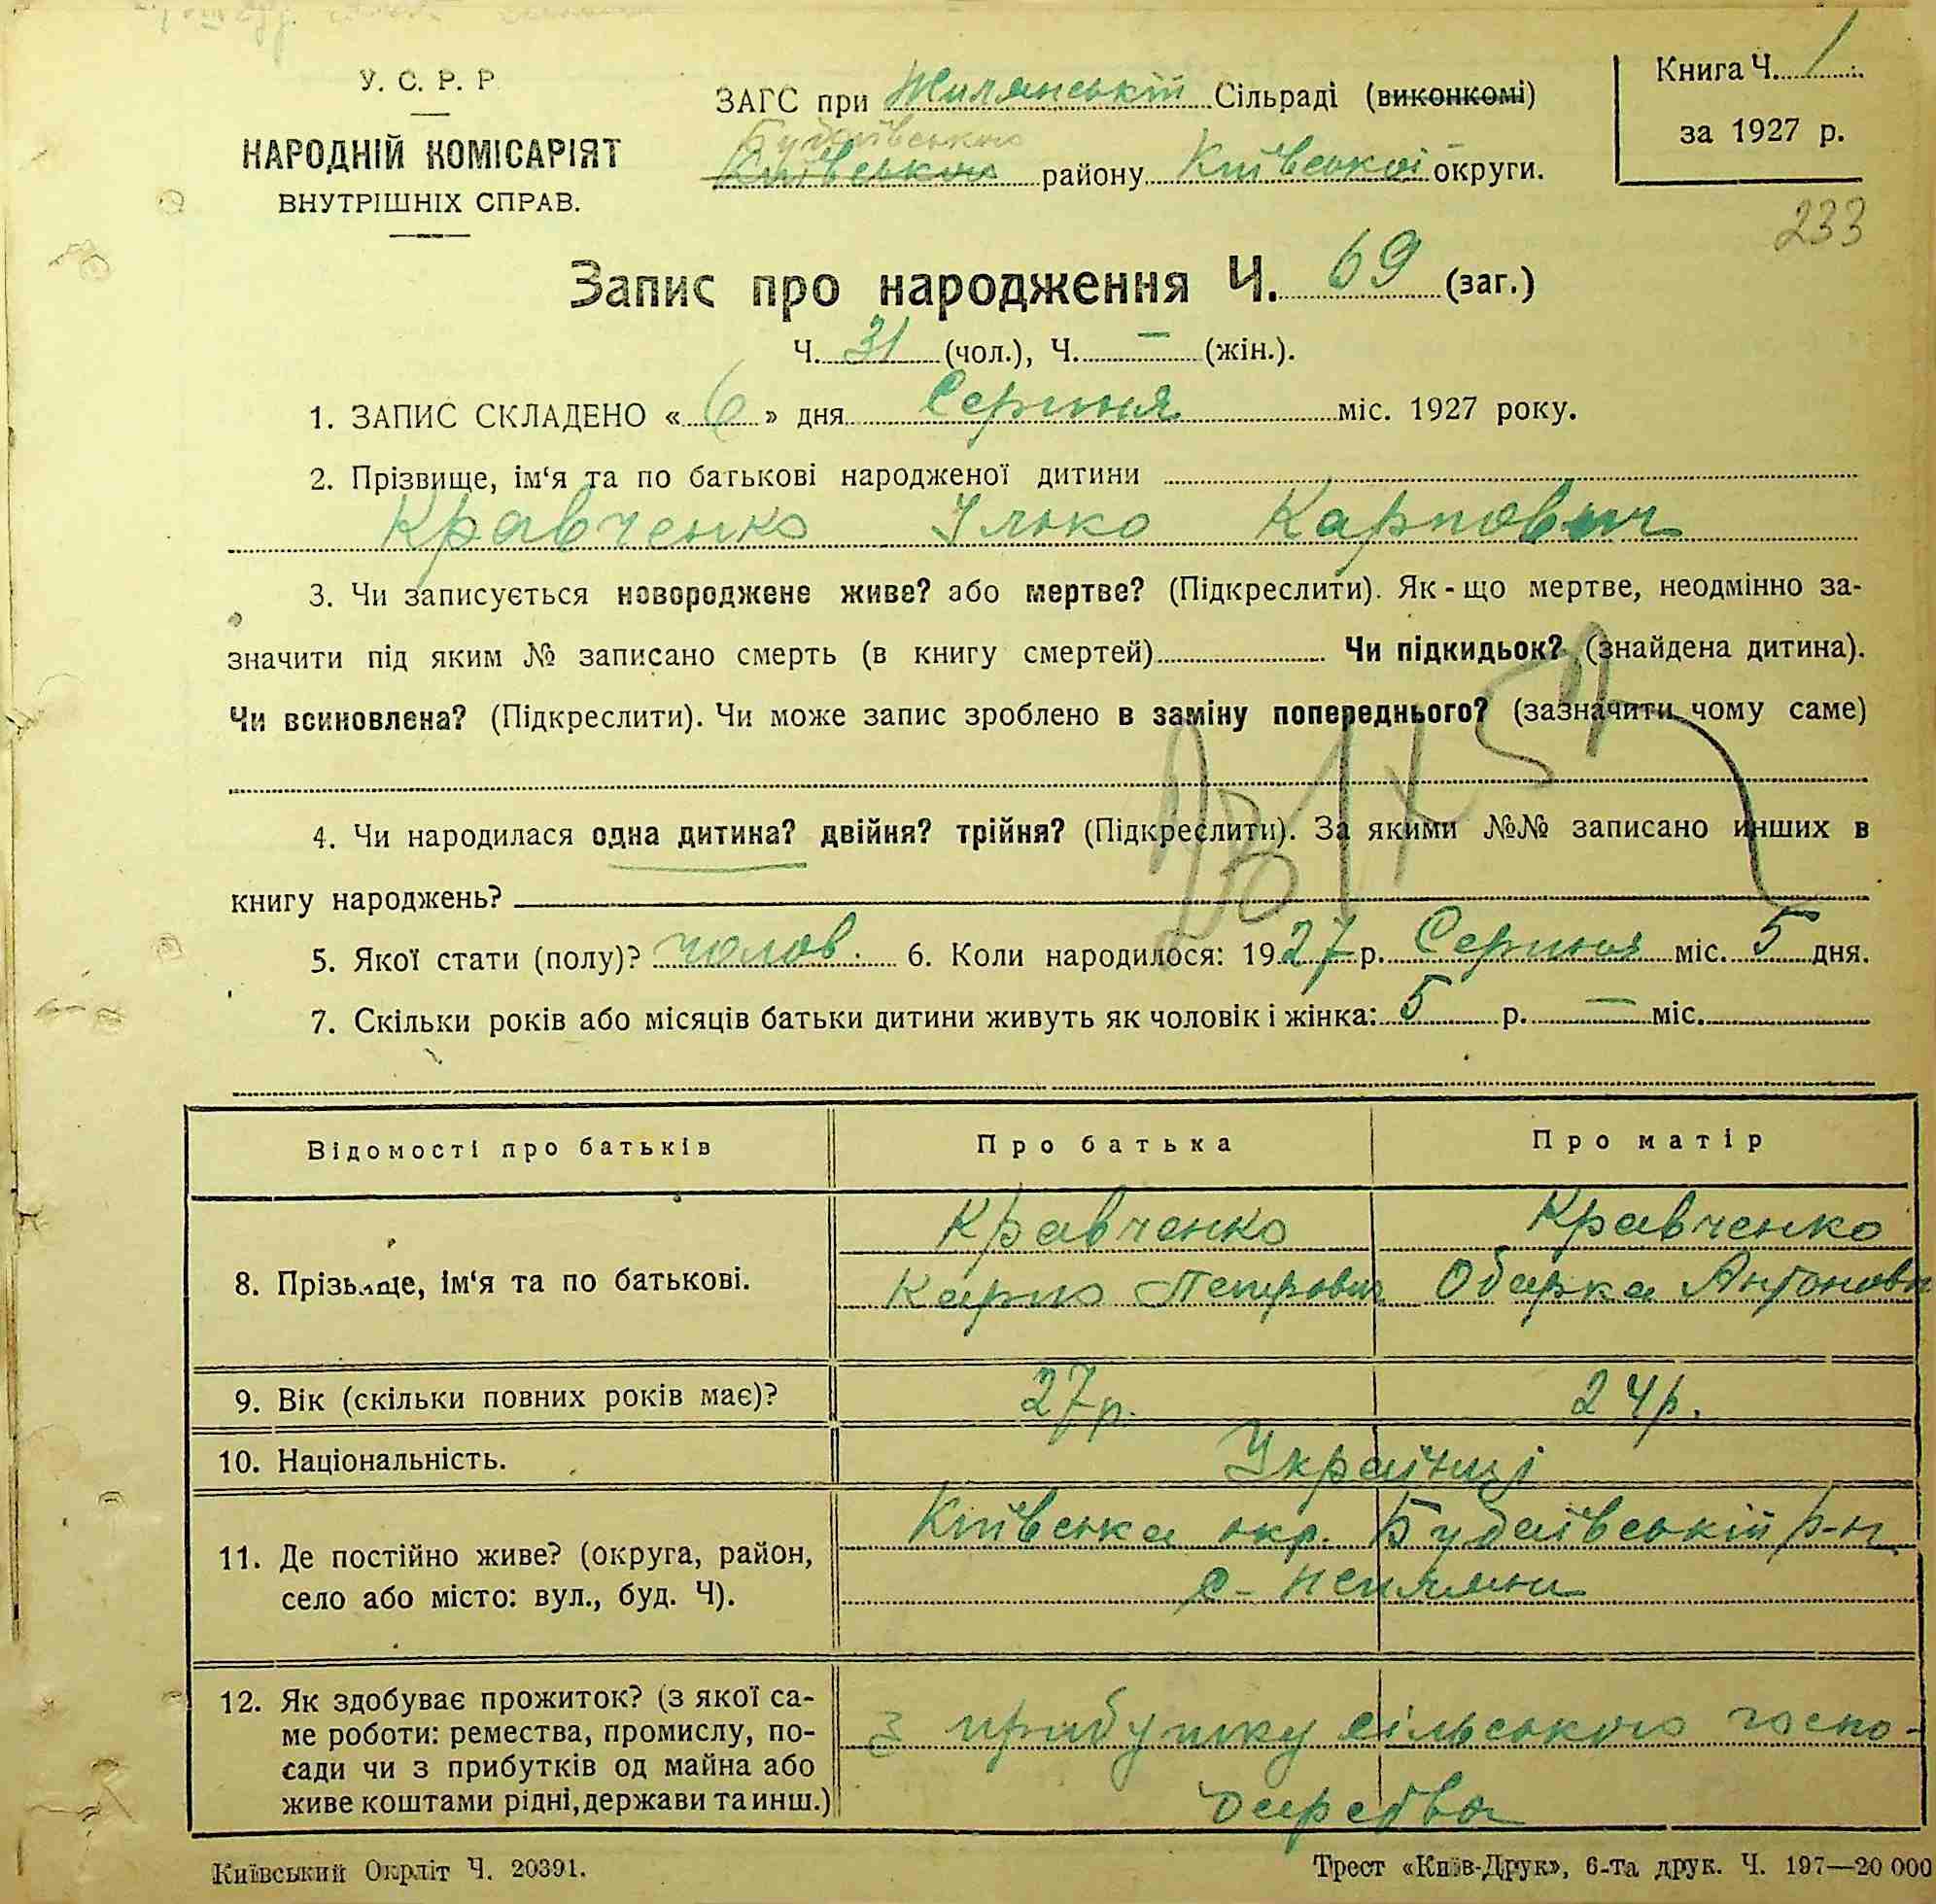 У. С. Р. Р
НАРОДНІЙ КОМІСАРІЯТ
ВНУТРІШНІХ СПРАВ.
ЗАГС при Жилянській Сільраді (виконкомі)
Будаївського
Київського району Київської округи.
Книга Ч. 1
за 1927 р.
233
Запис про народження Ч. 69 (заг.)
Ч. 31 (чол.), Ч. — (жін.).
1. ЗАПИС СКЛАДЕНО « 6 » дня Серпня міс. 1927 року.
2. Прізвище, ім‘я та по батькові народженої дитини
Кравченко Ілько Карпович
3. Чи записується новороджене живе? або мертве? (Підкреслити). Як-що мертве, неодмінно за-
значити під яким № записано смерть (в книгу смертей) Чи підкидьок? (знайдена дитина).
Чи всиновлена? (Підкреслити). Чи може запис зроблено в заміну попереднього? (зазначити чому саме)
4. Чи народилася одна дитина? двійня? трійня? (Підкреслити). За якими №№ записано инших в
книгу народжень?
5. Якої стати (полу)? чолов. 6. Коли народилося: 1927 р. Серпня міс. 5 дня.
7. Скільки років або місяців батьки дитини живуть як чоловік і жінка: 5 р. — міс.
Відомості про батьків Про батька Про матір
8. Прізвище, ім‘я та по батькові.
Кравченко Кравченко
Карпо Петрович Одарка Антоновн
9. Вік (скільки повних років має)? 27 р. 24 р.
10. Національність. Українці
11. Де постійно живе? (округа, район,
село або місто: вул., буд. Ч).
Київська окр. Будаївській р-н
с-
12. Як здобуває прожиток? (з якої са-
ме роботи: ремества, промислу, по-
сади чи з прибутків од майна або
живе коштами рідні, держави та инш.)
З прибутку сільського госпо-
дарства
Київський Окрліт Ч. 20391.
Трест «Київ-Друк», 6-та друк. Ч. 197—20 000